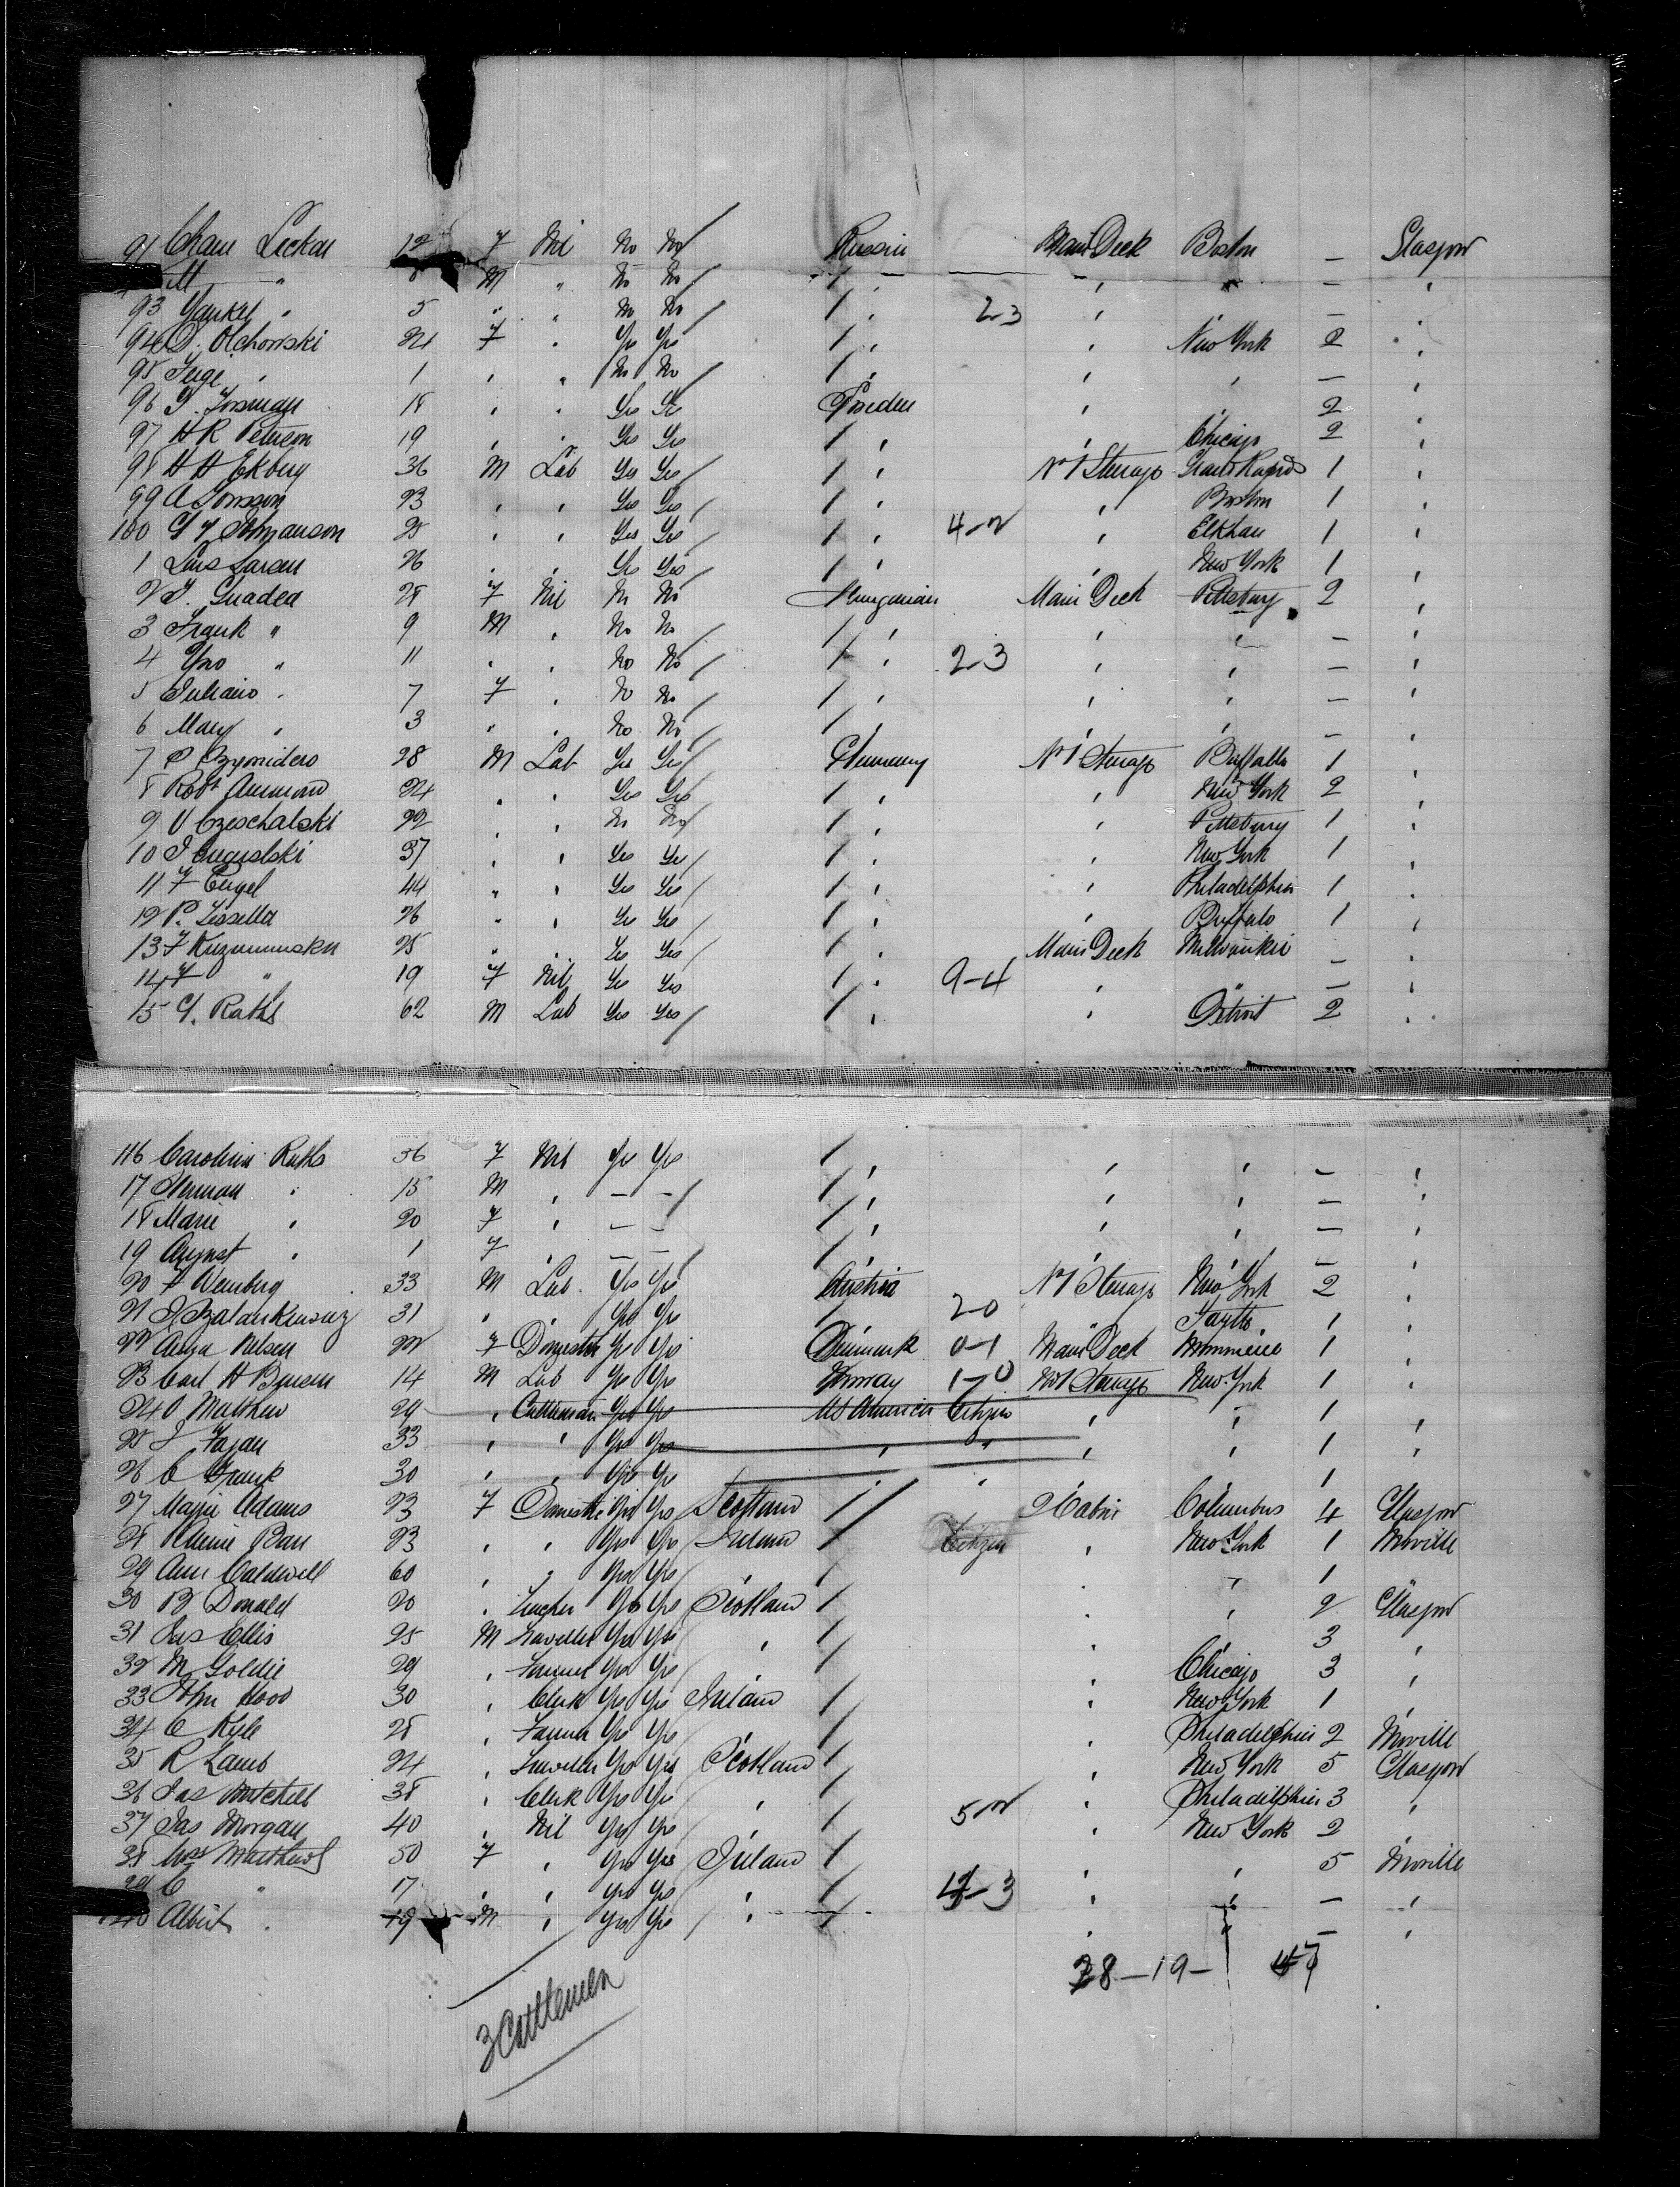 91 Chane Leckau 12 F Nil No No Russia Main Deck Boston - Glasgow
M " M " No No " " " - "
93 Yankel " 5 " " No No " 2-3 " " - "
94 D. Olchowski 24 F " Yes Yes " " New York 2 "
95 Feige " 1 " " No No " " " - "
96 T. Forsman 18 " " Yes Yes Sweden " " 2 "
97 H R Peterson 19 " " Yes Yes " " Chicago 2 "
98 H H Ekberg 36 M Lab Yes Yes " No 1 Steerage Grand Rapids 1 "
99 A Jonsson 23 " " Yes Yes " " Boston 1 "
100 G F Johnanson 25 " " Yes Yes " 4-2 " Elkhan 1 "
1 Lars Larsen 26 " " Yes Yes " " New York 1 "
2 J. Guadea 28 F Nil No No Hungarian Main Deck Pittsburg 2 "
3 Frank " 9 M " No No " " " - "
4 Yno " 11 " " No No " 2-3 " " - "
5 Juliano " 7 F " No No " " " - "
6 Mary " 3 " " No No " " " - "
7 P Szymidero 28 M Lab Yes Yes Germany No 1 Steerage Buffalo 1 "
8 Robt Ammond 24 " " Yes Yes " " New York 2 "
9 V Czeschalski 22 " " No No " " Pittsburg 1 "
10 J Cuguslski 37 " " Yes Yes " " New York 1 "
11 F Engel 44 " " Yes Yes " " Philadelphia 1 "
12 P. Lissella 26 " " Yes Yes " " Buffalo 1 "
13 F Kuzmminsku 25 " " Yes Yes " Main Deck Milwaukie - "
14 F " 19 F Nil Yes Yes " 9-4 " " - "
15 G. Raths 62 M Lab Yes Yes " " Detroit 2 "
116 Carolina Raths 56 F Nil Yes Yes " " " - "
17 Herman " 15 M " - - " " " - "
18 Marie " 20 F " - - " " " - "
19 August " 1 F " - - " " " - "
20 F Weinberg 33 M Lab Yes Yes Austria No 1 Steerage New York 2 "
21 31 " Yes Yes " 2-0 1 "
22 Anga Nelsen 22 F Domestic Yes Yes Denmark 0-1 Main Deck 1 "
23 Carl H Bensen 14 M Lab Yes Yes Norway 1-0 No 1 Steerage New York 1 "
24 O Matthew 29 " Cattleman Yes Yes US America Citizen " " 1 "
25 J Fagan 33 " " Yes Yes " " " " 1 "
26 C Frank 30 " " Yes Yes " " 1
27 Maggie Adams 23 F Domestic Yes Yes Scotland 2 Cabin Columbus 4 Glasgow
28 Rainie Barr 23 " " Yes Yes Ireland Citizen " New York 1 Moville
29 Ann Caldwell 60 " " Yes Yes " " " 1 "
30 B Donald 20 " Teacher Yes Yes Scotland " " 2 Glasgow
31 Jas Ellis 25 M Traveller Yes Yes " " 3 "
32 M Goldie 29 " Farmer Yes Yes " Chicago 3 "
33 John Hood 30 " Clerk Yes Yes Ireland " New York 1 "
34 C Kyle 28 " Farmer Yes Yes " Philadelphia 2 Moville
35 R Lamb 24 " Traveller Yes Yes Scotland " New York 5 Glasgow
36 Jas Mitchell 38 " Clerk Yes Yes " " Philadelphia 3 "
37 Jas Morgan 40 " Nil Yes Yes " 5-2 " New York 2 "
38 Mrs Matthews 50 F " Yes Yes Ireland " " 5 Moville
C " 17 " " Yes Yes " 4-3 " " - "
Albert " 19 M " Yes Yes " " " - "
28-19- 47
3 Cattlemen